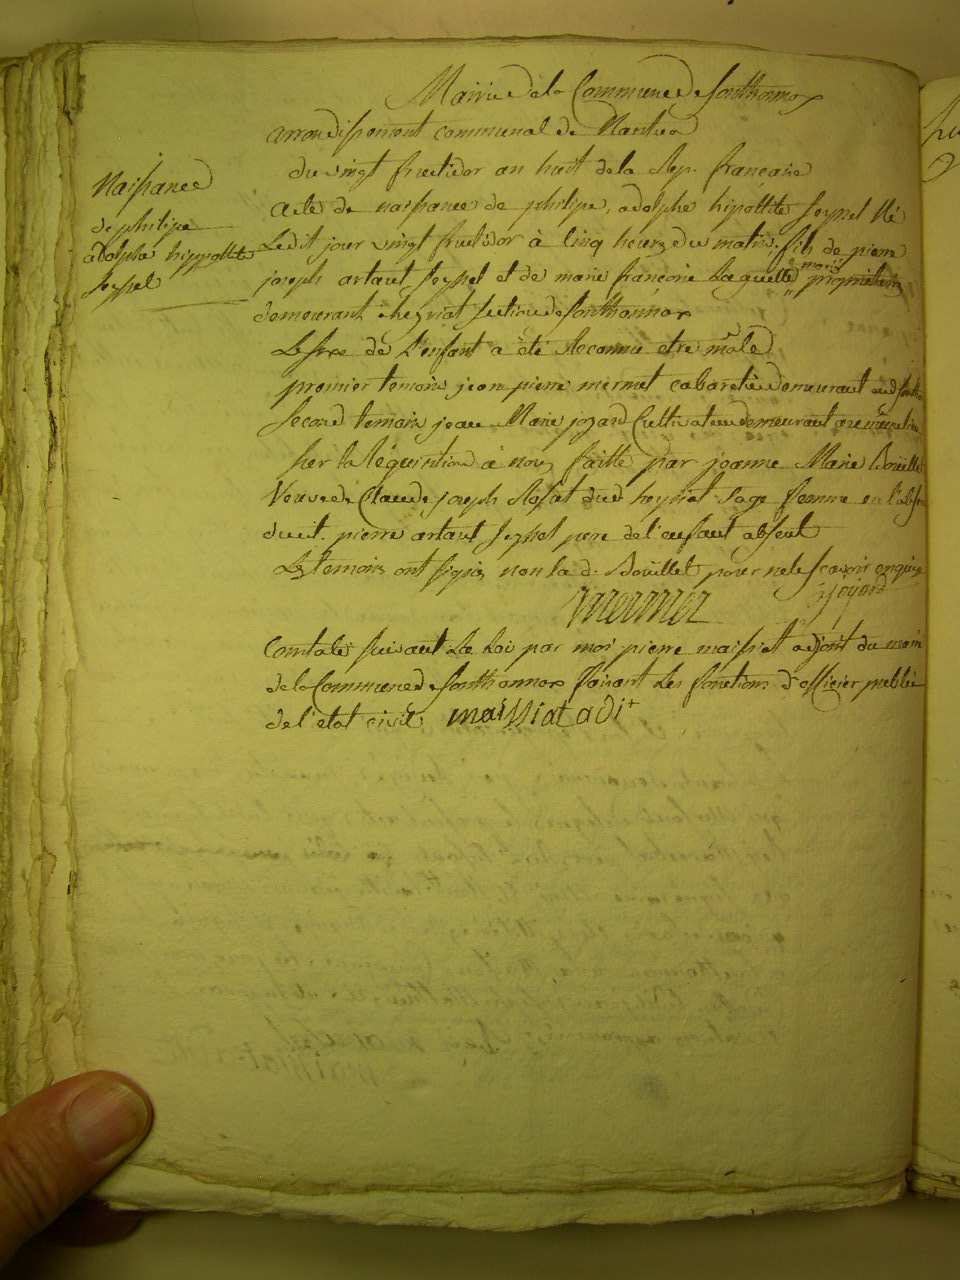 Mairie de la Commune de Sonthonnax
arrondissement communal de Nantua
du vingt fructidor an huit de la Rep. francaise
Naissance
de philipe
adolphe hippollite
Seyssel
acte de naissance de philipe, adolphe hipollite Seyssel Né
Ledit jour vingt fructidor à Cinq heures du matin, fils de pierre
joseph artaut Seyssel et de marie francoise Laguette mariés propriétaires
demeurant à heyriat section de Sonthonnax
Le sexe de L'enfant a été Reconnu etre mâle
premier temoin jean pierre mermet cabaretier demeurant aud
Second temoin jean Marie jozard Cultivateur demeurant au même lieu
sur la Réquisition à nous faitte par jeanne Marie Bouillet
Veuve de Claude joseph Rosat dud heyriat Sage femme en l'abs
dud. pierre artaut Seyssel pere de l'enfant absent
Les temoins ont signés non la d. Bouillet pour ne le Scavoir enquise
mermet jojard
Constaté suivant La Loi par moi pierre maissiat adjoit du maire
de la Commune de Sonthonnax faisant Les fonctions d'officier public
de l'etat civil maissiat adit